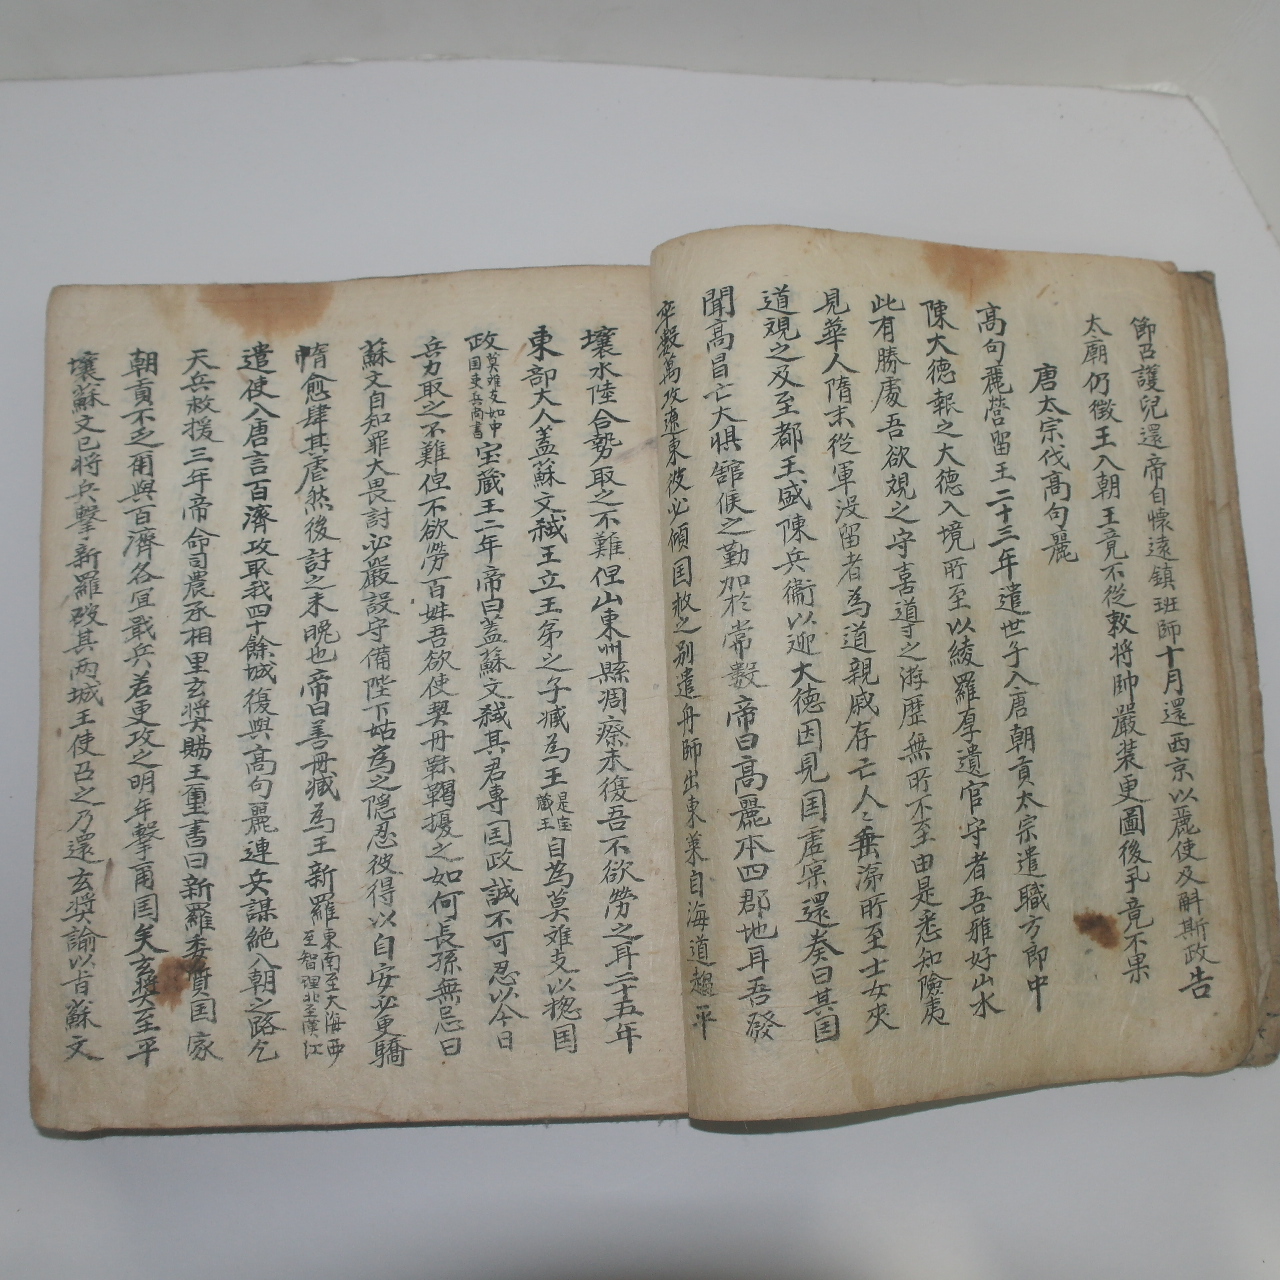 節召護兒還帝自懷遠鎮班師十月還西京以麗使及斛斯政告
太廟仍徵王入朝王竟不從敕將帥嚴裝更圖後乎竟不果
唐太宗伐高句麗
高句麗營留王二十三年遣世子入唐朝貢太宗遣職方郎中
陳大德報之大德入境所至以綾羅厚遺官守者吾雅好山水
此有勝處吾欲視之守喜導之游歷無所不至由是悉知險夷
見華人隋末從軍沒留者為道親戚存亡人〻垂涕所至士女夾
道視之及至都王盛陳兵衛以迎大德因見国虛宲還奏曰其国
聞高昌亡大惧舘候之勤加於常數帝曰高麗本四郡地耳吾發
卒數萬攻遼東彼必傾国救之別遣舟師出東萊自海道趨平
壤水陸合勢取之不難但山東州縣凋瘵未復吾不欲勞之耳二十五年
東部大人盖蘇文弒王立王弟之子臧為王是宝臧王自為莫难支以摠国
政莫难支如中国吏兵尚書宝蔵王二年帝曰盖蘇文弒其君專国政誠不可忍以今日
兵力取之不難但不欲勞百姓吾欲使契丹靺鞨擾之如何長孫無忌曰
蘇文自知罪大畏討必嚴設守備陛下姑為之隱忍彼得以自安必更驕
惰愈肆其虐然後討之未晩也帝曰善冊臧為王新羅東南至大海西至智理北至漢江
遣使入唐言百濟攻取我四十餘城復與高句麗連兵謀絶入朝之路乞
天兵救援三年帝命司農丞相里玄奬賜王璽書曰新羅委質国家
朝貢不乏爾與百濟各宜戢兵若更攻之明年擊爾国矣玄奬至平
壤蘇文已將兵擊新羅破其两城王使召之乃還玄奬諭以旨蘇文